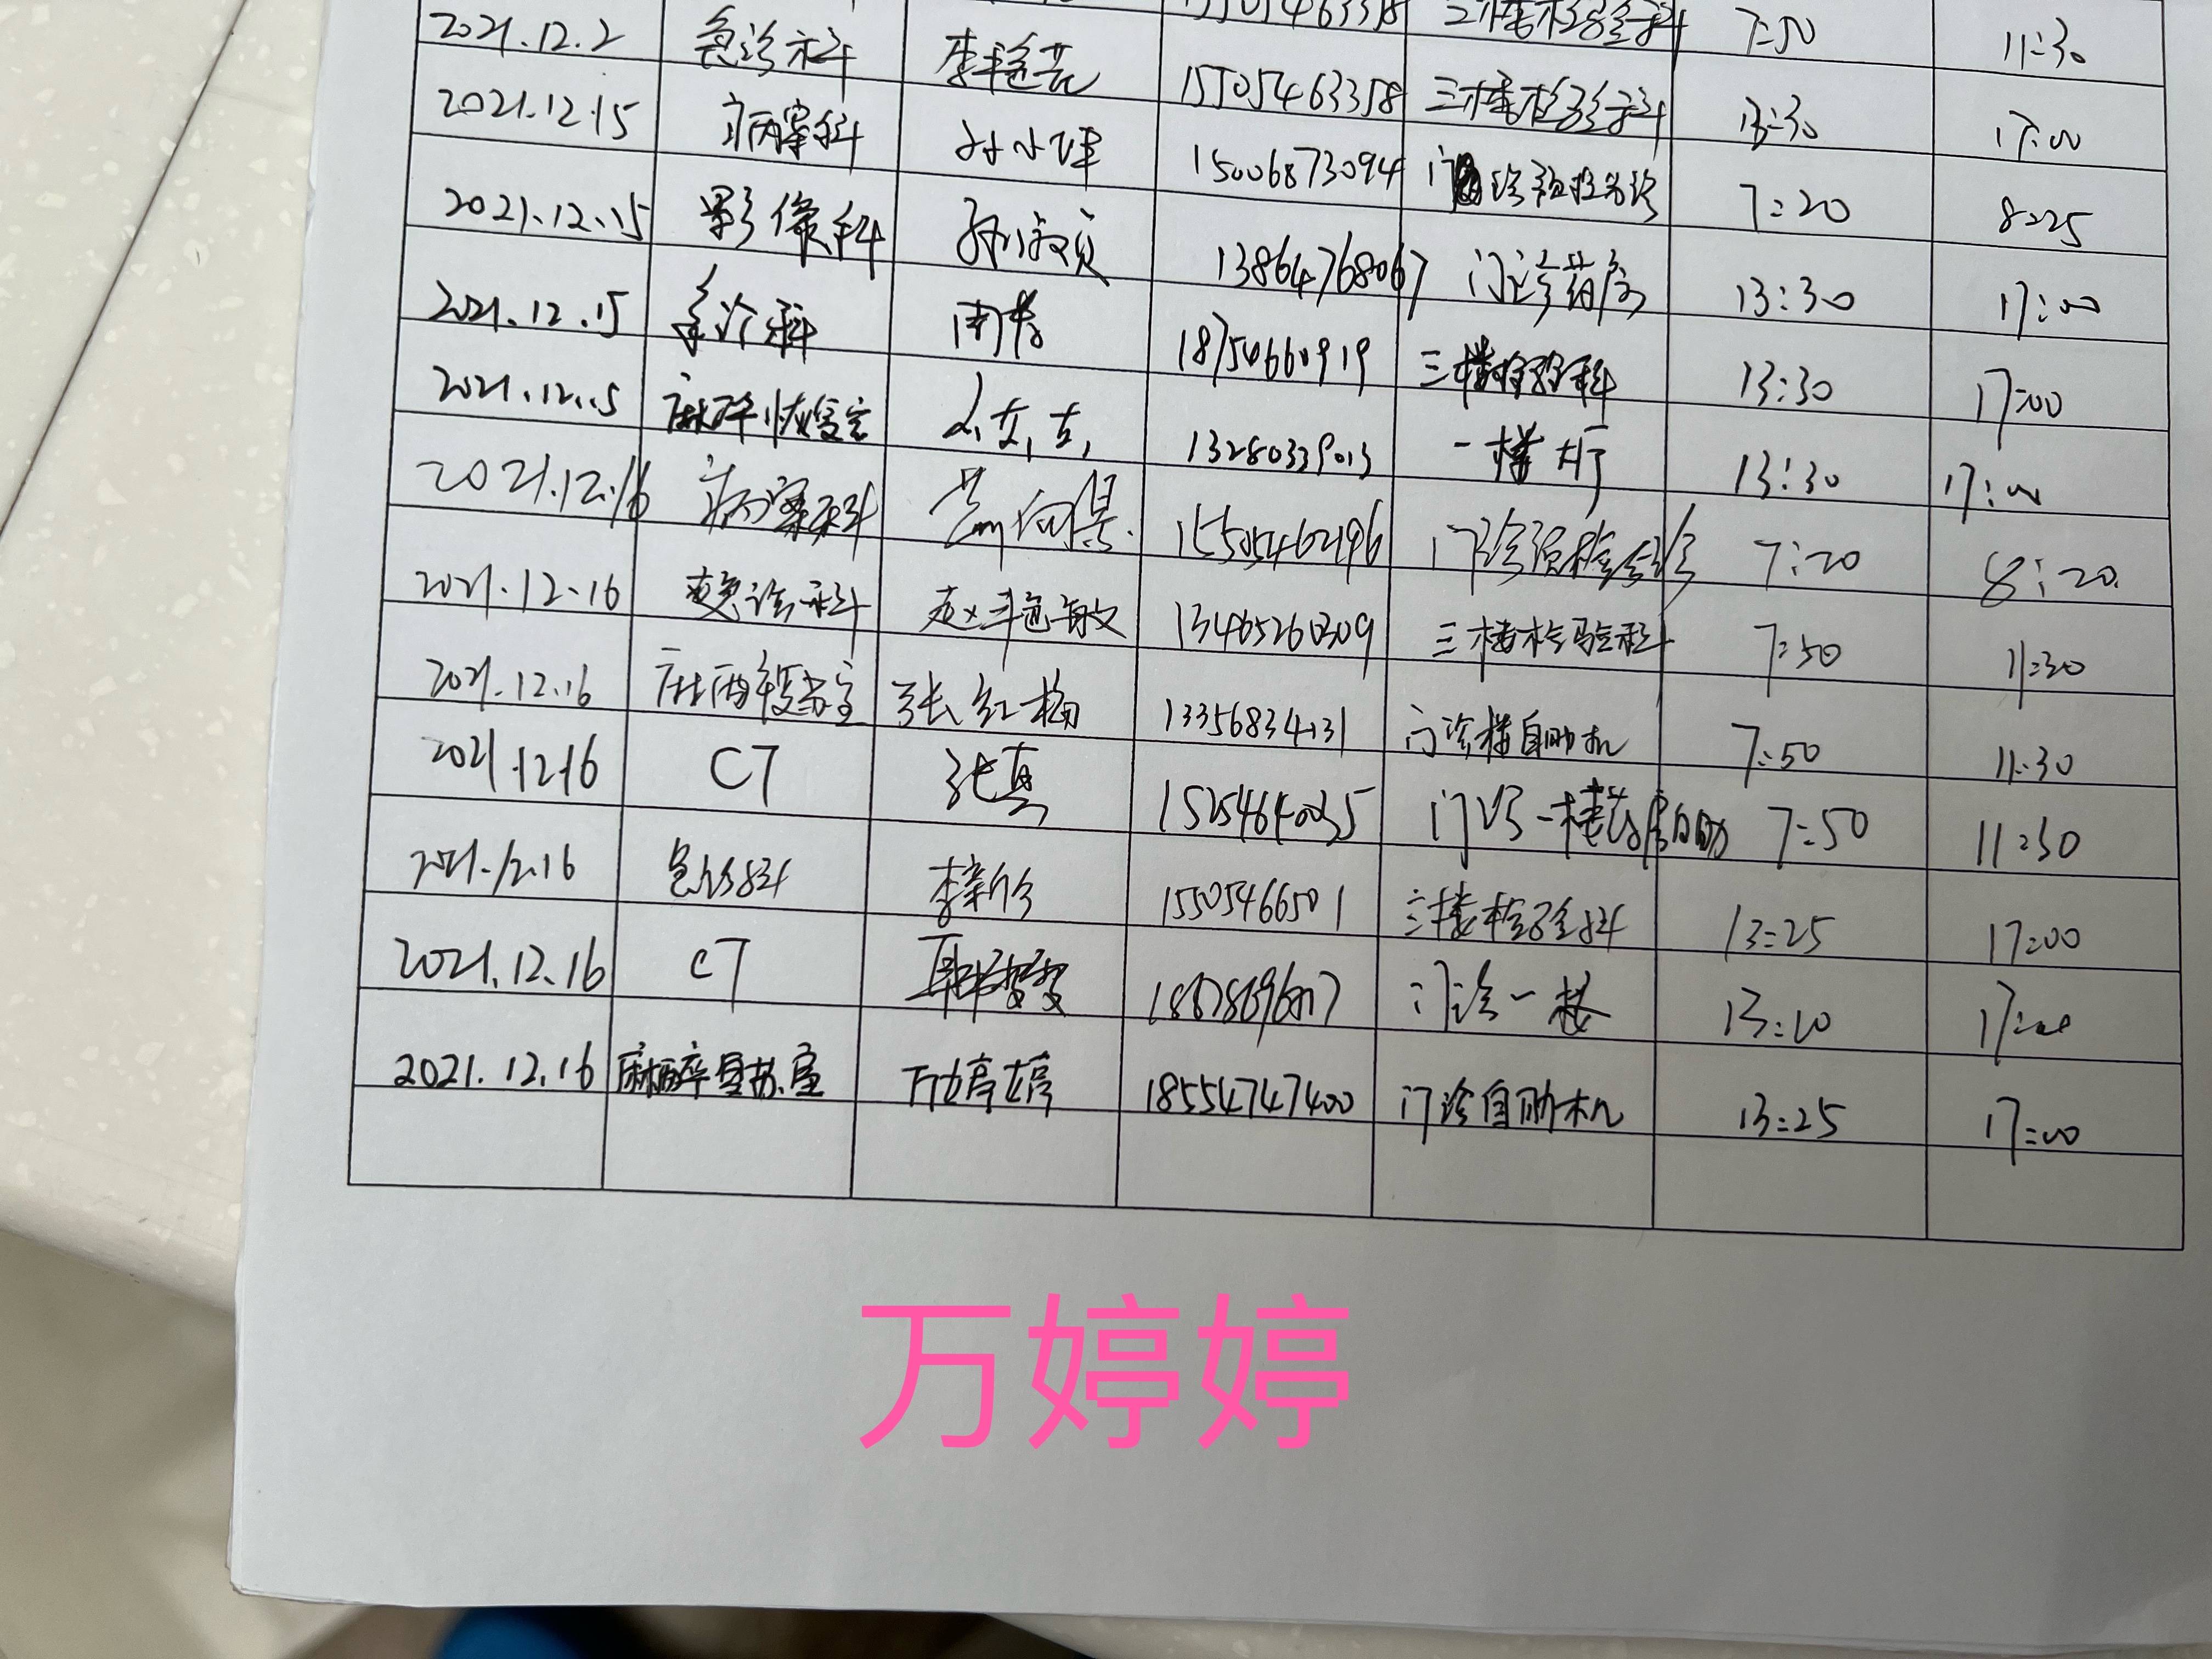 15505463358 三楼检验科 7:50 11:30
2021.12.2 急诊科 李延芸 15505463358 三楼检验科 13:30 17:00
2021.12.15 病案科 孙小 15006873094 门诊预检分诊 7:20 8:25
2021.12.15 影像科 孙淑贞 13864768067 门诊药房 13:30 17:00
2021.12.15 急诊科 18754660919 三楼检验科 13:30 17:00
2021.12.15 麻醉恢复室 13280339013 一楼大厅 13:30 17:00
2021.12.16 病案科 15505462196 门诊预检分诊 7:20 8:20
2021.12.16 急诊科 赵延敏 13465260309 三楼检验科 7:50 11:30
2021.12.16 麻醉复苏室 张红梅 13356834131 门诊楼自助机 7:50 11:30
2021.12.16 CT 张真 门诊一楼药房自助 7:50 11:30
2021.12.16 急诊科 李新 15505466501 三楼检验科 13:25 17:00
2021.12.16 CT 门诊一楼 13:10 17:00
2021.12.16 麻醉复苏室 万婷婷 18554747400 门诊自助机 13:25 17:00
万婷婷